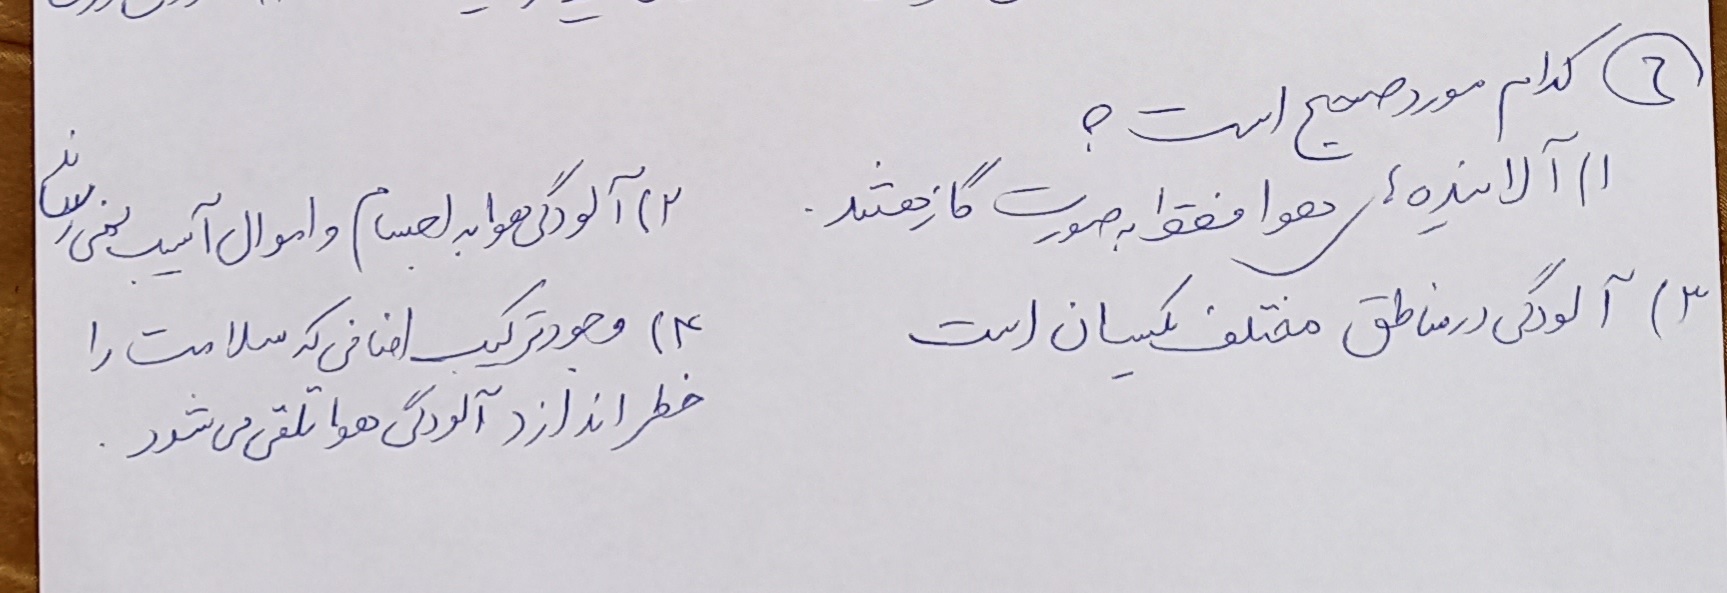 ۶ کدام مورد صحیح است ؟
۱) آلاینده های هوا فقط به صورت گاز هستند .
۲) آلودگی هوا به اجسام و اموال آسیب نمی رساند
۳) آلودگی در مناطق مختلف یکسان است
۴) وجود ترکیب اضافی که سلامت را
خطر اندازد آلودگی هوا تلقی می شود .